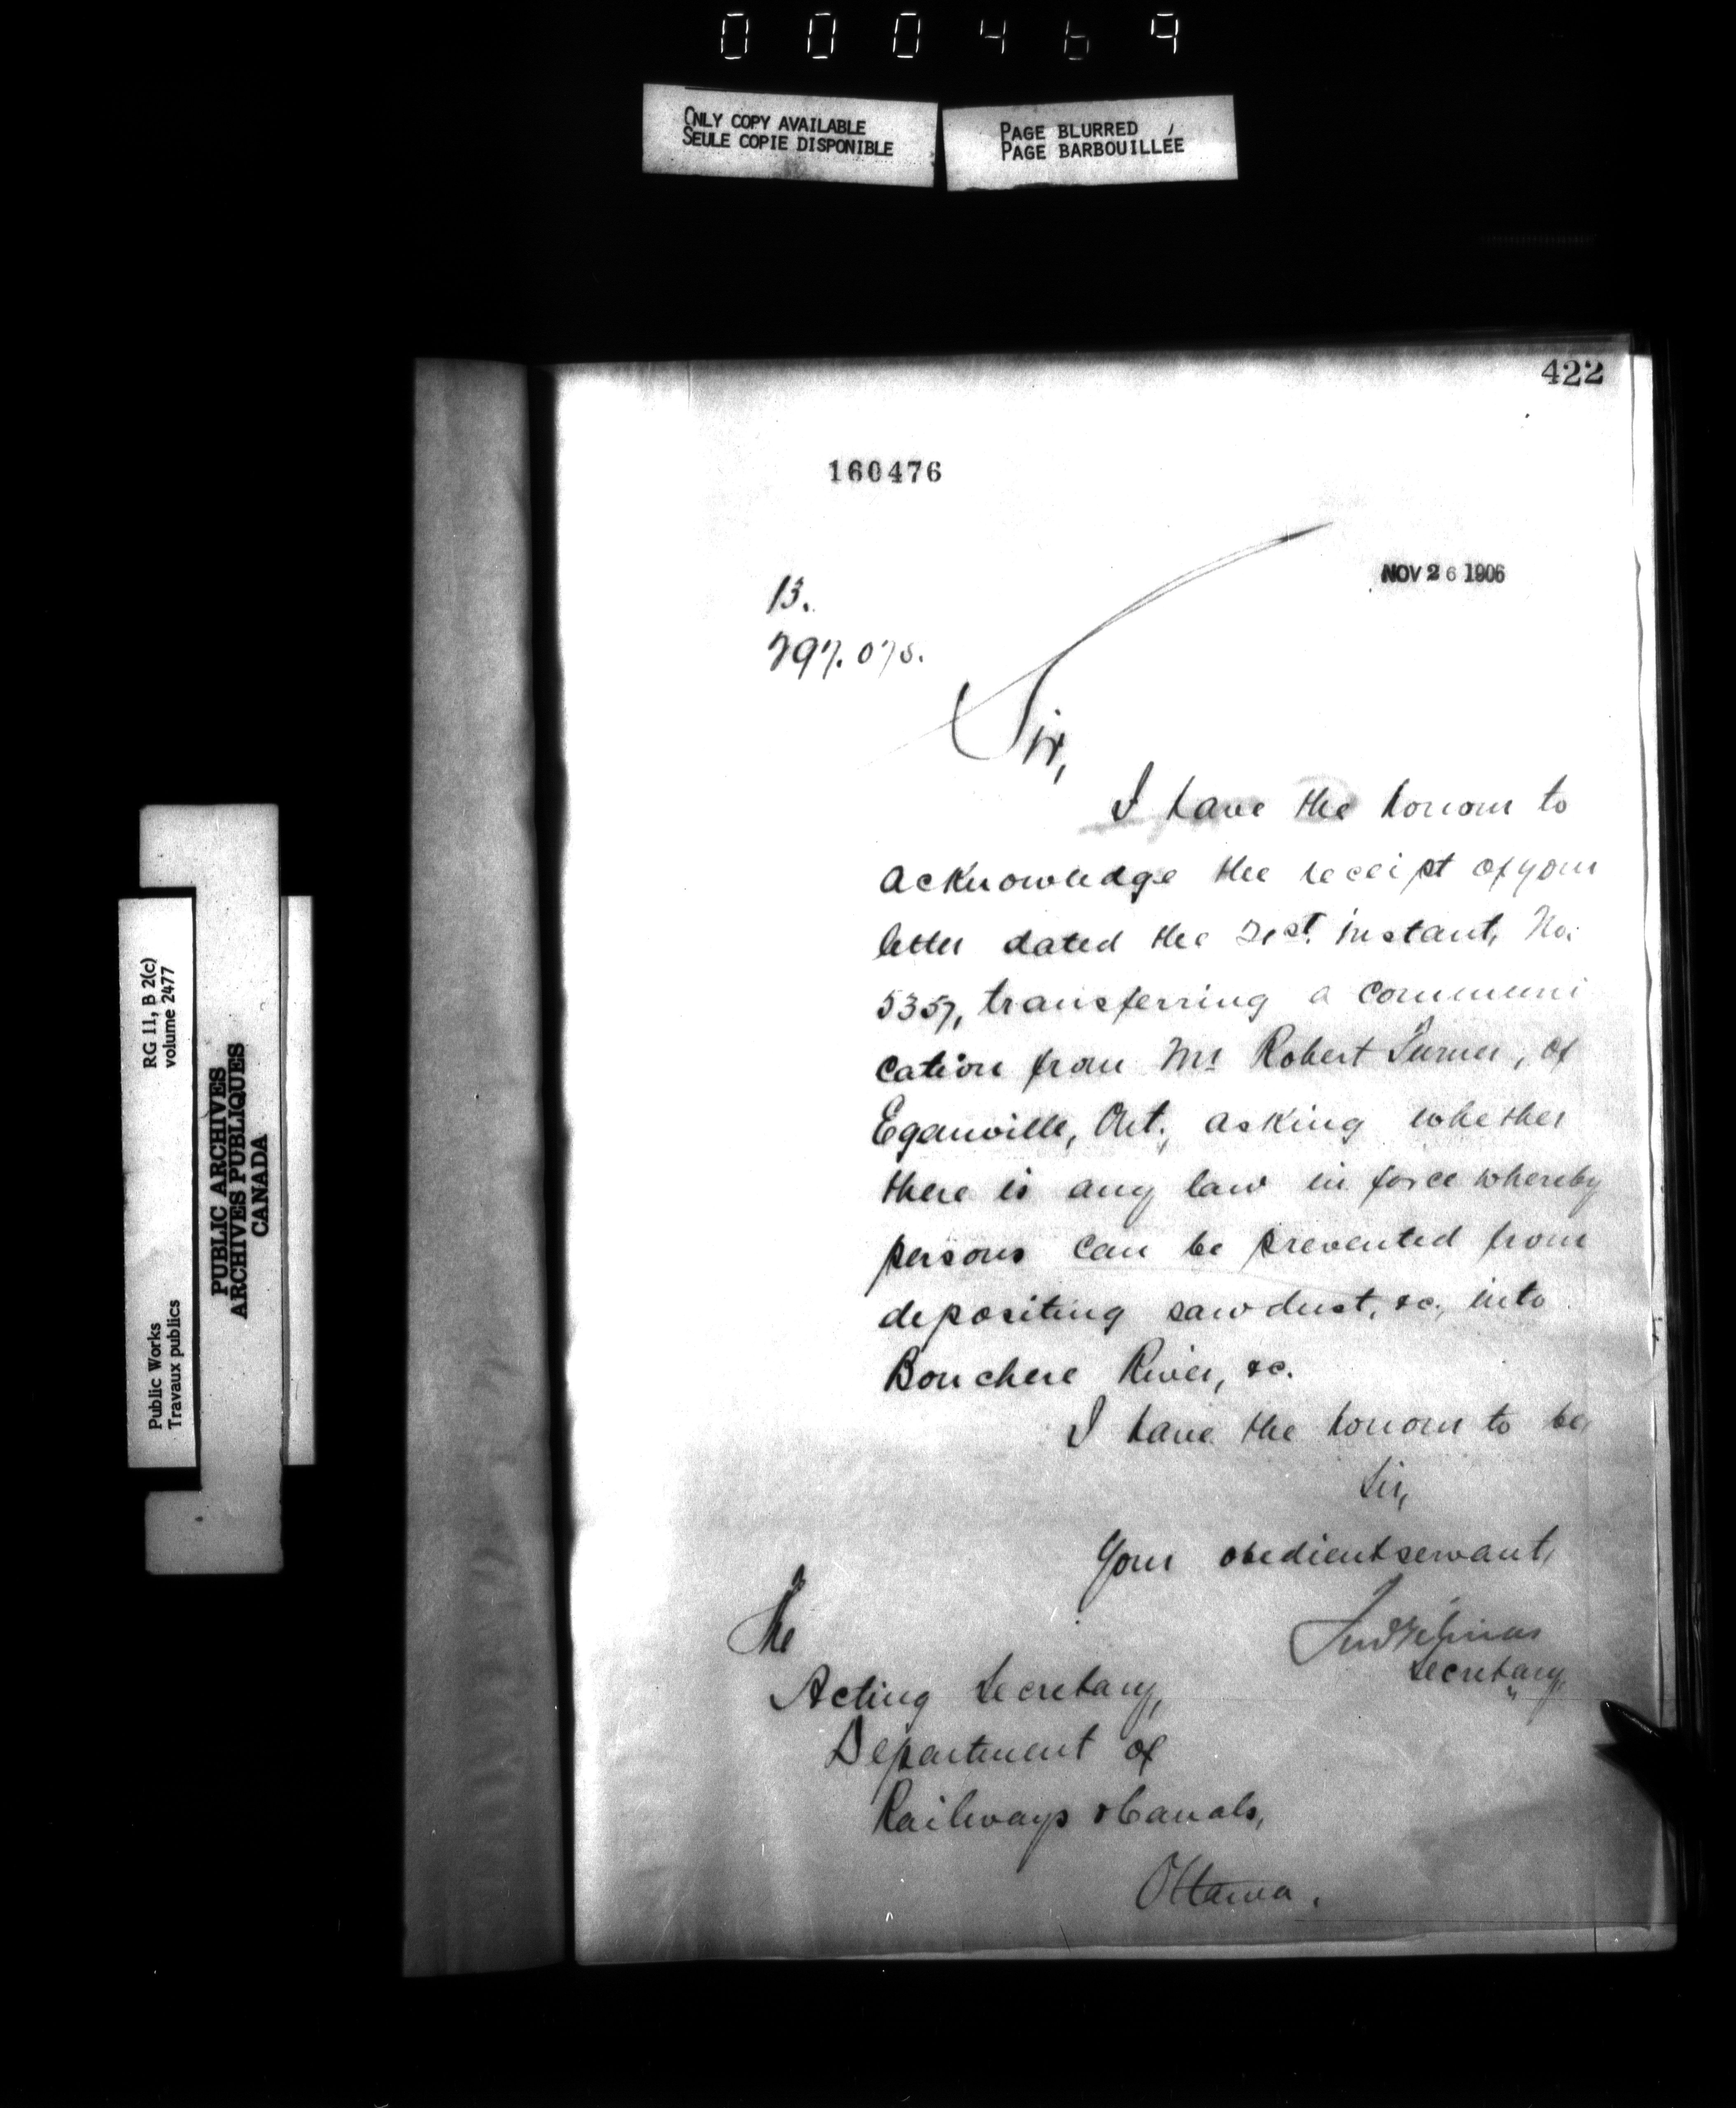 000469
ONLY COPY AVAILABLE
SEULE COPIE DISPONIBLE
PAGE BLURRED
PAGE BARBOUILLÉE
422
160476
NOV 26 1906
13.
297.075.
Sir,
I have the honour to
acknowledge the receipt of your
letter dated the 21st. instant, No.
5357, transferring a communi
cation from Mr Robert Turner, of
Eganville, Ont., asking whether
there is any law in force whereby
persons can be prevented from
depositing sawdust, &c., into
Bonchere River, &c.
I have the honour to be,
Sir,
Your obedient servant,
Secretary,
The
Acting Secretary,
Department of
Railways & Canals,
Ottawa.
RG 11, B 2(c)
volume 2477
Public Works
Travaux publics
PUBLIC ARCHIVES
ARCHIVES PUBLIQUES
CANADA